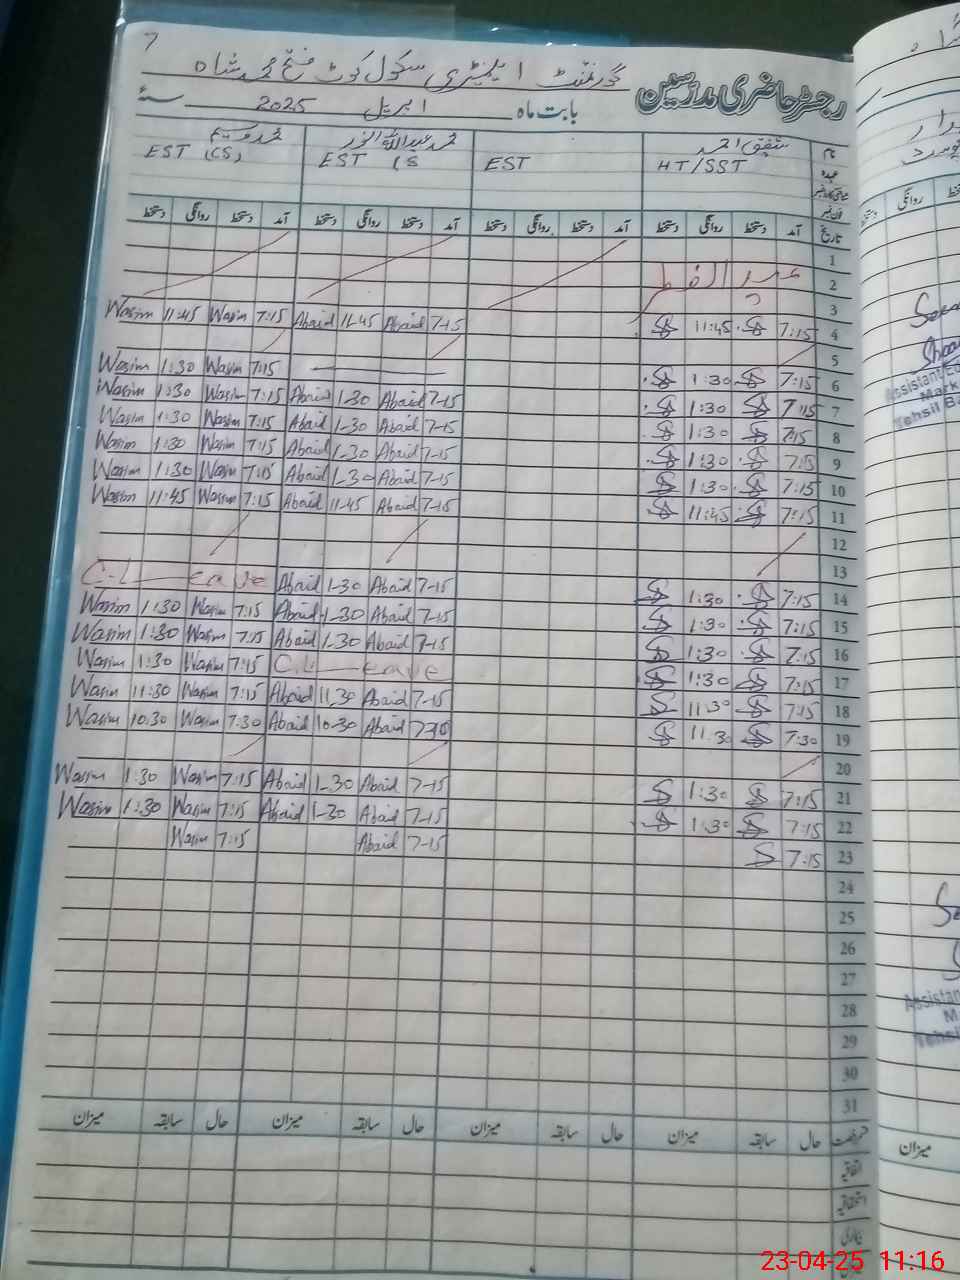 7
گورنمنٹ ایلیمنٹری سکول کوٹ فتح محمد شاہ
رجسٹر حاضری مدرسین
بابت ماہ اپریل 2025 سنہ
نام شفیق احمد محمد عبداللہ انور محمد وسیم
عہدہ HT/SST EST EST CS EST (CS)
تاریخ آمد دستخط روانگی دستخط آمد دستخط روانگی دستخط آمد دستخط روانگی دستخط آمد دستخط روانگی دستخط
1
2 عید الفطر
3
4 7:15 11:45 7-15 Abaid 11-45 Abaid 7:15 Wasim 11:45 Wasim
5
6 7:15 1:30 7:15 Wasim 1:30 Wasim
7 7:15 1:30 7-15 Abaid 1-30 Abaid 7:15 Wasim 1:30 Wasim
8 7:15 1:30 7-15 Abaid 1-30 Abaid 7:15 Wasim 1:30 Wasim
9 7:15 1:30 7-15 Abaid 1-30 Abaid 7:15 Wasim 1:30 Wasim
10 7:15 1:30 7-15 Abaid 1-30 Abaid 7:15 Wasim 1:30 Wasim
11 7:15 11:45 7-15 Abaid 11-45 Abaid 7:15 Wasim 11:45 Wasim
12
13
14 7:15 1:30 7-15 Abaid 1-30 Abaid C.L—eave
15 7:15 1:30 7-15 Abaid 1-30 Abaid 7:15 Wasim 1:30 Wasim
16 7:15 1:30 7-15 Abaid 1-30 Abaid 7:15 Wasim 1:30 Wasim
17 7:15 1:30 C.L—eave 7:15 Wasim 1:30 Wasim
18 7:15 11:30 7-15 Abaid 11-30 Abaid 7:15 Wasim 11:30 Wasim
19 7:30 11:30 Abaid 10-30 Abaid 7:30 Wasim 10:30 Wasim
20
21 7:15 1:30 7-15 Abaid 1-30 Abaid 7:15 Wasim 1:30 Wasim
22 7:15 1:30 7-15 Abaid 1-30 Abaid 7:15 Wasim 1:30 Wasim
23 7:15 7-15 Abaid 7:15 Wasim
24
25
26
27
28
29
30
31
حال سابقہ میزان حال سابقہ میزان حال سابقہ میزان حال سابقہ میزان
اتفاقیہ
استحقاقیہ
بیماری
روانگی
میزان
23-04-25 11:16